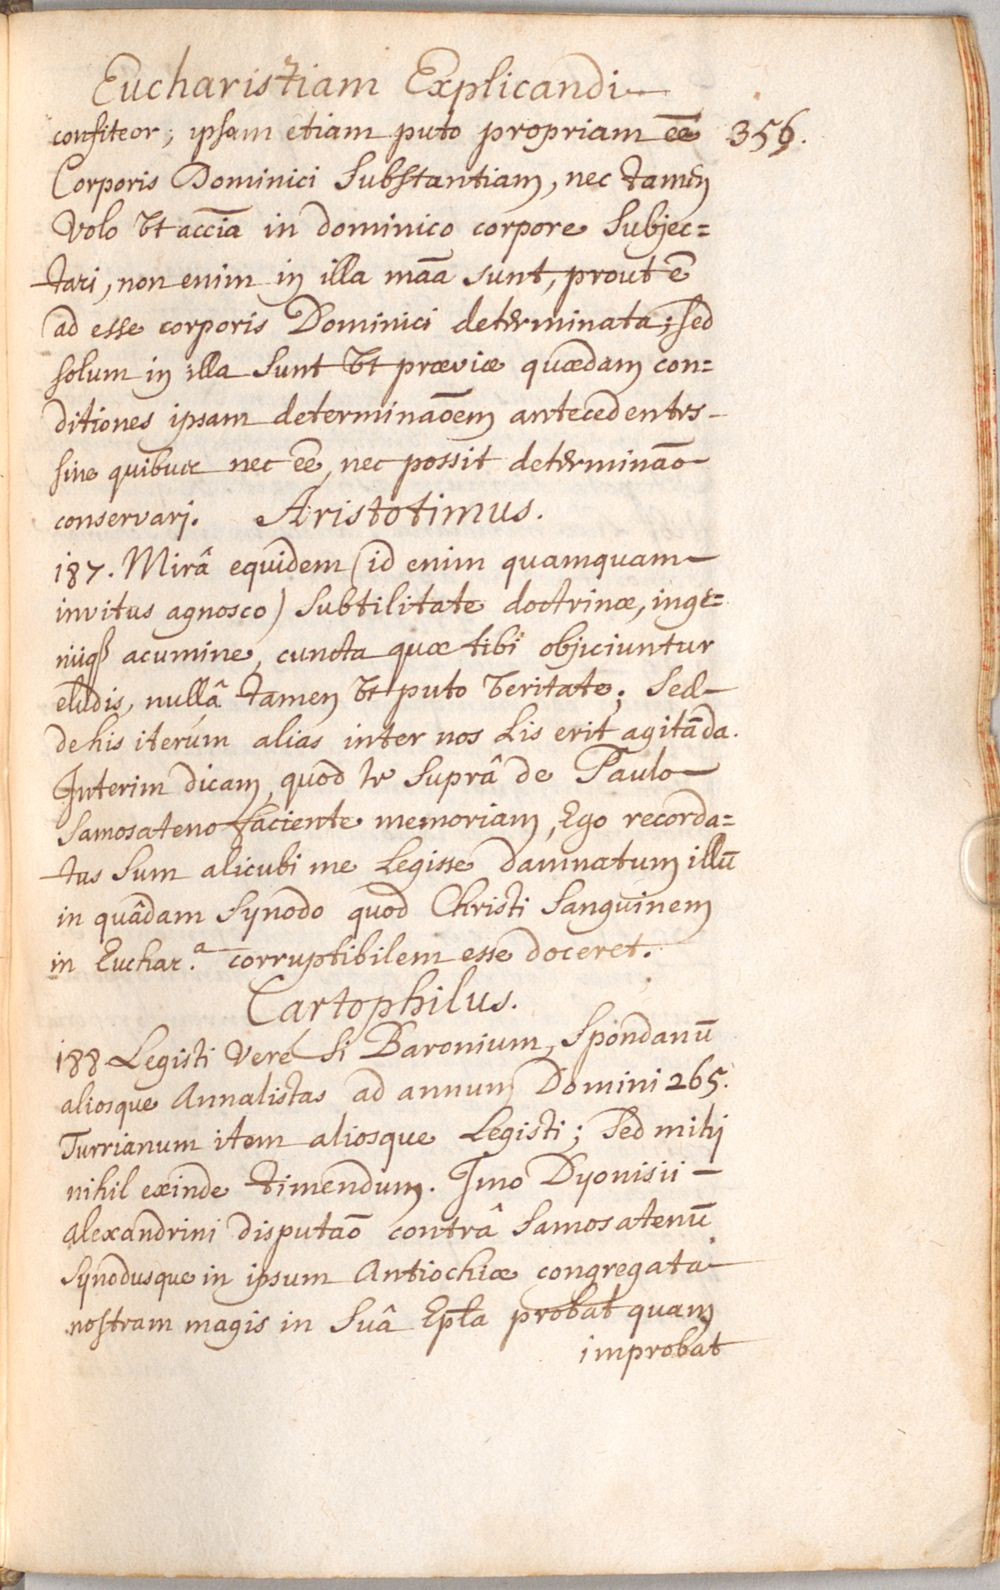 Eucharistiam Explicandi
confiteor; ipsam etiam puto propriam eē 356.
Corporis Dominici Substantiam, nec tamen
Volo Vt acc̄ia in dominico corpore Subjec=
tari, non enim in illa māa sunt, prout ē
ad esse corporis Dominici determinata; sed
solum in illa Sunt Vt præviæ quædam con=
ditiones ipsam determināoem antecedentes
sine quibus nec eē, nec possit determināo
conservari. Aristotimus.
187. Mirâ equidem (id enim quamquam
invitus agnosco) Subtilitate doctrinæ, inge=
niiq̃ acumine, cuncta quæ tibi objiciuntur
eludis, nullâ tamen Vt puto Veritate; Sed
de his iterúm alias inter nos Lis erit agitāda.
Interim dicam, quod te Suprâ de Paulo
Samosateno faciente memoriam, Ego recorda=
tus Sum alicubi me Legisse damnatum illū
in quâdam Synodo quod Christi Sanguinem
in Euchar.ª corruptibilem esse doceret.
Cartophilus.
188 Legisti Veré si Baronium, Spondanū
aliosque Annalistas ad annum Domini 265.
Turrianum item aliosque Legisti; Sed mihi
nihil exinde timendum. Imo Dyonisii
Alexandrini disputaō contrâ Samosatenū
Synodusque in ipsum Antiochiæ congregata
nostram magis in Suâ Ep̄la probat quam
improbat